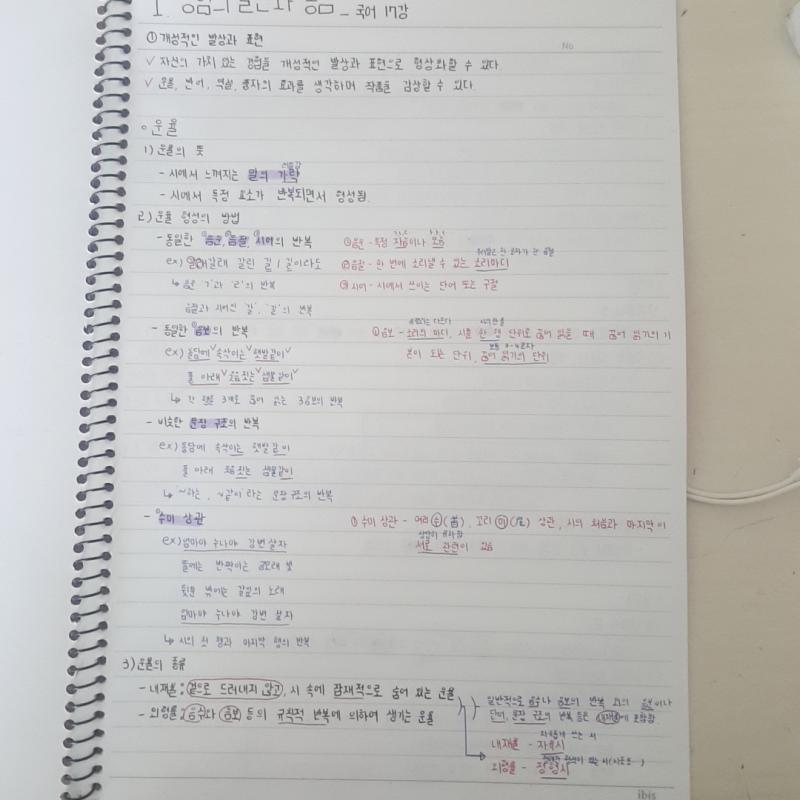 1. 공감의 눈과 귀 - 국어 17강
No
① 개성적인 발상과 표현
✓ 자신의 가치 있는 경험을 개성적인 발상과 표현으로 형상화할 수 있다.
✓ 운율, 반어, 역설, 풍자의 효과를 생각하며 작품을 감상할 수 있다.
○ 운율
1) 운율의 뜻
- 시에서 느껴지는 말의 가락
- 시에서 특정 요소가 반복되면서 형성됨.
2) 운율 형성의 방법
- 동일한 음운, 음절, 시어의 반복 ① 음운 - 특정 자음이나 모음
ex) 갈래갈래 갈린 길 / 길이라도 ② 음절 - 한 번에 소리낼 수 있는 소리마디
↳ 음운 'ㄱ'과 'ㄹ'의 반복 ③ 시어 - 시에서 쓰이는 단어 또는 구절
음절과 시어인 '갈', '길'의 반복
- 동일한 음보의 반복 ① 음보 - 소리의 마디, 시를 한 행 단위로 끊어 읽을 때 끊어 읽기의 기
보통 3~4글자
ex) 돌담에 ✓ 속삭이는 ✓ 햇발같이 ✓ 본이 되는 단위, 끊어 읽기의 단위
풀 아래 ✓ 웃음짓는 ✓ 샘물같이 ✓
↳ 각 행을 3개로 끊어 읽는 3음보의 반복
- 비슷한 문장 구조의 반복
ex) 돌담에 속삭이는 햇발같이
풀 아래 웃음짓는 샘물같이
↳ ~하는, ~같이 라는 문장구조의 반복
- 수미 상관 ① 수미 상관 - 머리 수(首), 꼬리 미(尾) 상관, 시의 처음과 마지막이
ex) 엄마야 누나야 강변 살자 서로 관련이 있음
뜰에는 반짝이는 금모래 빛
뒷문 밖에는 갈잎의 노래
엄마야 누나야 강변 살자
↳ 시의 첫 행과 마지막 행의 반복
3) 운율의 종류
- 내재율 : 겉으로 드러내지 않고, 시 속에 잠재적으로 숨어 있는 운율
일반적으로 음수나 음보의 반복 외의 음운이나
- 외형률 : 음수와 음보 등의 규칙적 반복에 의하여 생기는 운율
단어, 문장 구조의 반복 등은 내재율에 포함함.
자유롭게 쓰는 시
내재율 - 자유시
외형률 - 정형시
ibis